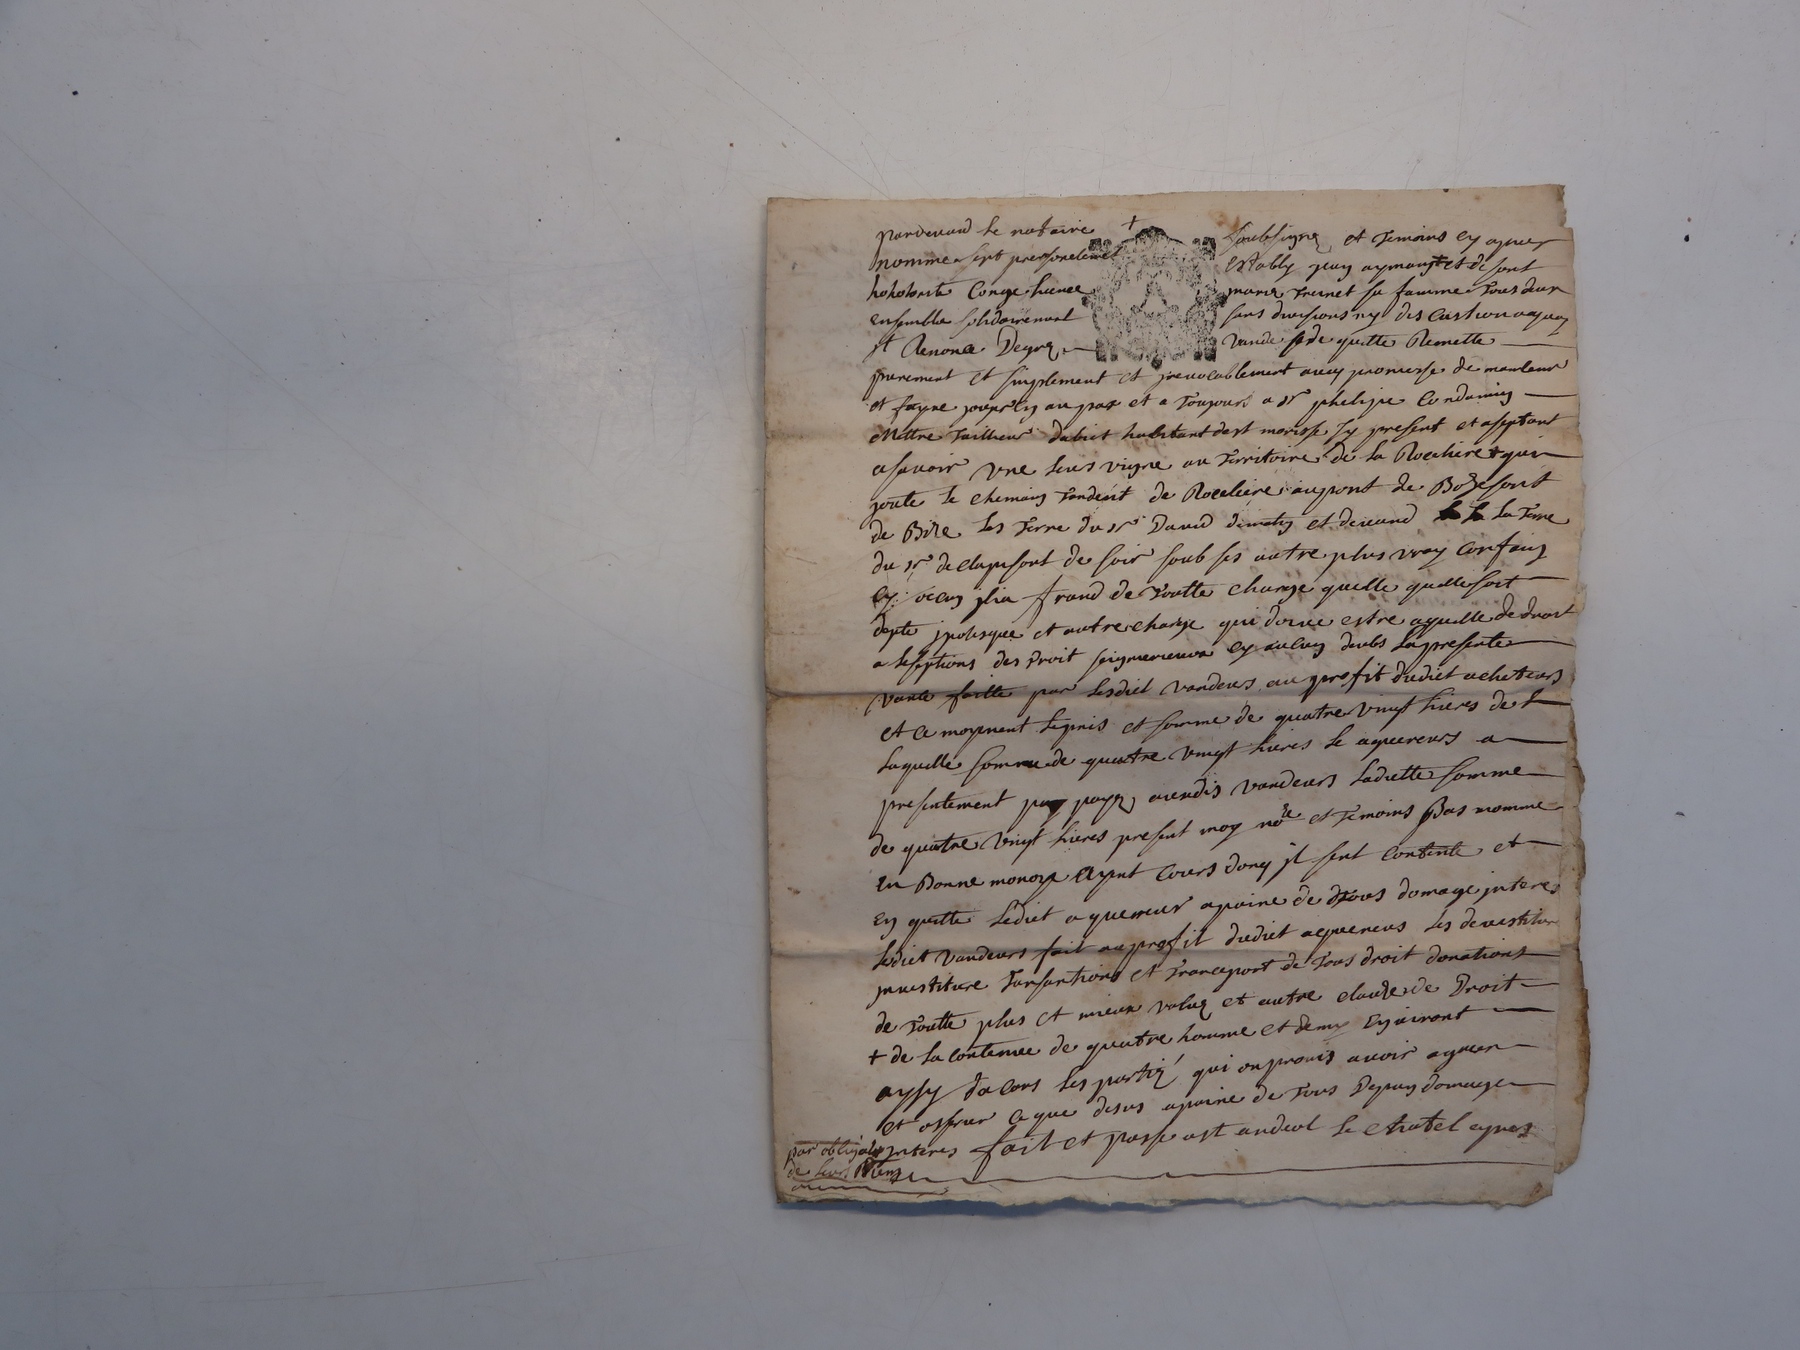 pardevand le notaire soubsigne et temoins cy apres
nomme sest personelement estably jean aymard et de sont
hotorite marie freinet sa famme tous deux
ensemble solidairemant sans divisions ny discution
et Renonce vande sede quitte Remette
purement et simplement et jrevocablement avec promesse de
et fayre jouyr en au pax et a toujours a sr phelipe Condamin
Mettre tailleur dabict habitant dest morisse jy present et aseptant
a savoir vne leurs vigne au territoire de la Rochere + qui
joute le chemain tandent de Rocheire au pont de Bosefont
de Bize les terre du sr David et devand la terre
du sr declapisont de soir soub ses autre plus vray Confain
franc de toutte charge quelle quelle soit
depte jpotesque et autre charge qui doive estre aquelle de droit
a lexseptions des droit seigneurieux la presente
vante faitte par lesdict vandeurs au profit dudict acheteurs
et ce moyenent le pris et somme de quatre vingt livres de
laquelle somme de quatre vingt livres le aquereurs a
presentement paye vandeurs ladiette somme
de quatre vingt livres present moy nore et temoins Bas nomme
en Bonne monoye ayent cours jl sont contente et
en quitte ledict aquereur a paine de tous domage jnteres
ledict vandeurs fait au profit dudict aquereus les devestiture
jnvestiture et transport de tous droit donations
de toutte plus et mieux value et autre clauze de Droit
+ de la contenue de quatre homme et demy
aysy les partie qui on promis avoir
et ce que desus a paine de tous Depans domage
jnteres fait et passe a st andeol le
par oblige
de leurs Biens